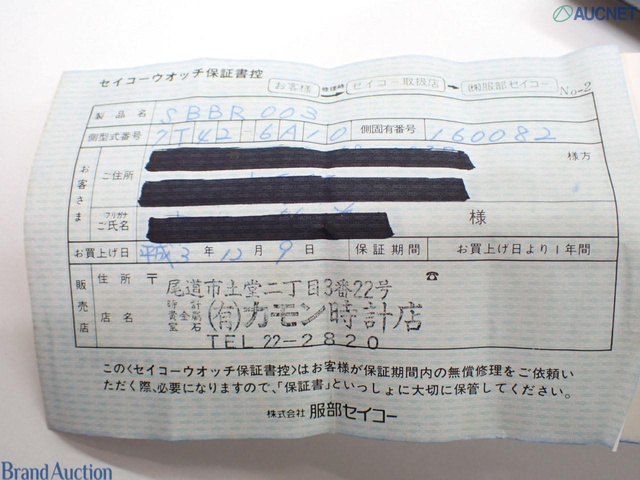 AUCNET
セイコーウオッチ保証書控
お客様 修理時 セイコー取扱店 ㈱服部セイコー No-2
製品名 SBBR003
側型式番号 7T42-6A10 側固有番号 160082
お客さま
ご住所 様方
フリガナ
ご氏名 様
お買上げ日 平成3年12月9日 保証期間 お買上げ日より1年間
販売店
住所 〒 尾道市土堂二丁目3番22号 ☎
店名 時計 貴金属 宝石 (有)カモン時計店
TEL 22-2820
この<セイコーウオッチ保証書控>はお客様が保証期間内の無償修理をご依頼い
ただく際、必要になりますので、「保証書」といっしょに大切に保管してください。
株式会社 服部セイコー
Brand Auction